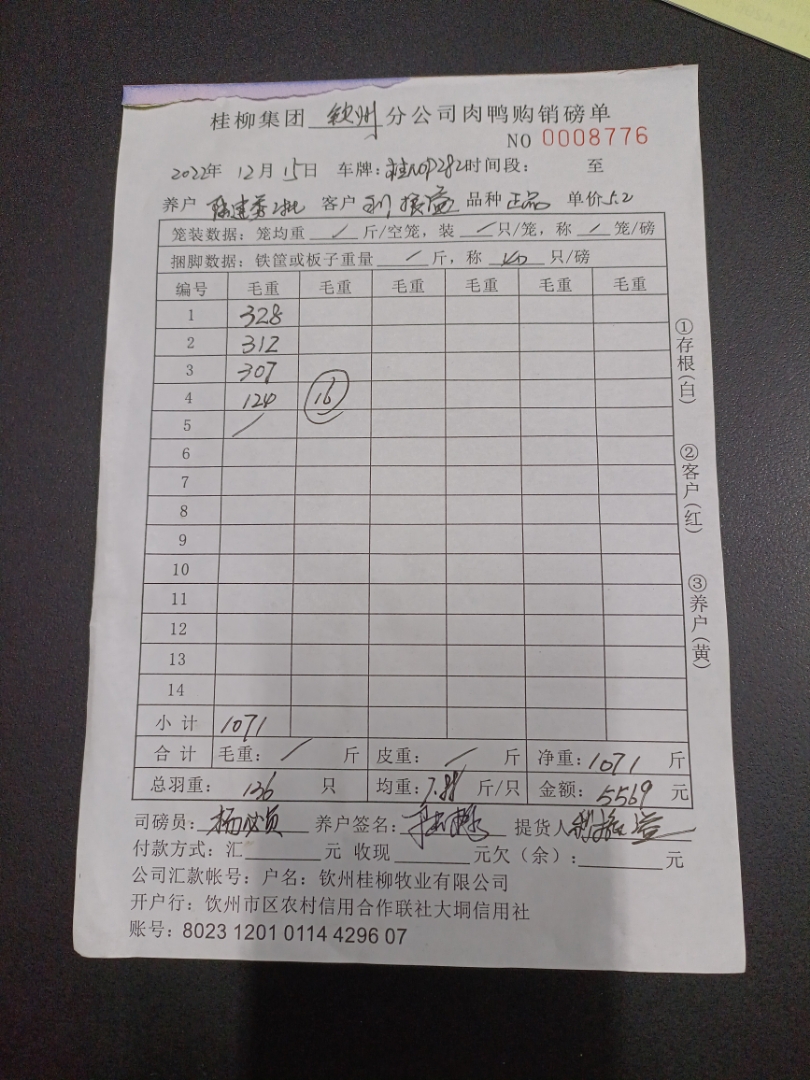 桂柳集团 钦州 分公司肉鸭购销磅单
NO 0008776
2022年 12月 15日 车牌: 时间段: 至
养户 客户 品种 正品 单价 5.2
笼装数据: 笼均重 / 斤/空笼, 装 / 只/笼, 称 / 笼/磅
捆脚数据: 铁筐或板子重量 / 斤, 称 40 只/磅
编号 毛重 毛重 毛重 毛重 毛重 毛重
1 328
2 312
3 307
4 124 16
5 /
6
7
8
9
10
11
12
13
14
小计 1071
合计 毛重: / 斤 皮重: / 斤 净重: 1071 斤
总羽重: 136 只 均重: 7.88 斤/只 金额: 5569 元
司磅员: 养户签名: 提货人
付款方式: 汇 元 收现 元欠(余): 元
公司汇款帐号: 户名: 钦州桂柳牧业有限公司
开户行: 钦州市区农村信用合作联社大垌信用社
账号: 8023 1201 0114 4296 07
①存根(白)
②客户(红)
③养户(黄)